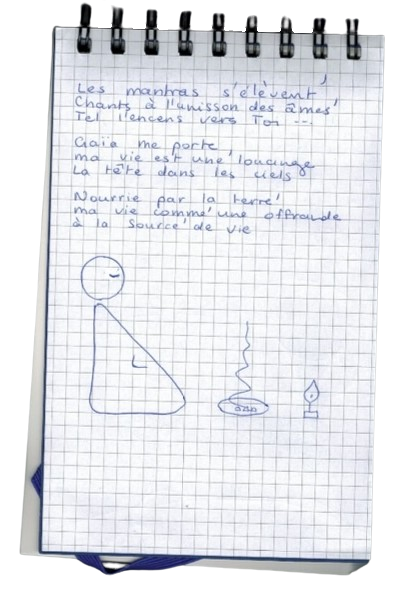 Les mantras s'élèvent
Chants à l'unisson des âmes
Tel l'encens vers Toi ...
Gaïa me porte,
ma vie est une louange
La tête dans les ciels
Nourrie par la terre
ma vie comme une offrande
à la source de vie